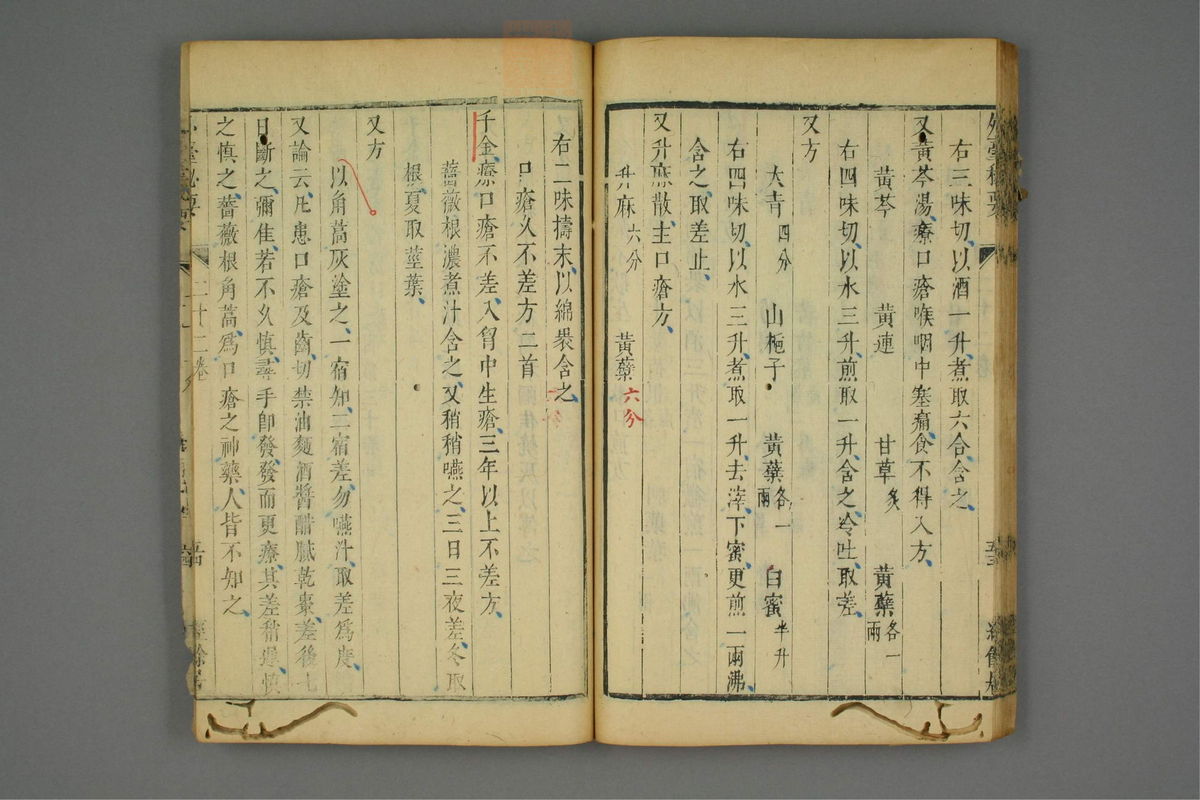 右三味切以酒一升煮取六合含之
又黃芩湯療口瘡喉咽中塞痛食不得入方
黃芩 黃連 甘草炙 黃蘗各一兩
右四味切以水三升煎取一升含之冷吐取差
又方
大青四分 山梔子 黃蘗各一兩 白蜜半升
右四味切以水三升煮取一升去滓下蜜更煎一兩沸
含之取差止
又升麻散主口瘡方
升麻六分 黃蘗六分
右二味擣末以綿裹含之
口瘡久不差方二首
千金療口瘡不差入胷中生瘡三年以上不差方
薔薇根濃煮汁含之又稍稍嚥之三日三夜差冬取
根夏取莖葉
又方
以角蒿灰塗之一宿知二宿差勿嚥汁取差爲度
又論云凡患口瘡及齒切禁油麵酒醬醋膩乾棗差後七
日斷之彌佳若不久慎尋手即發發而更療其差稍遲慎
之慎之薔薇根角蒿爲口瘡之神藥人皆不知之
二十二卷